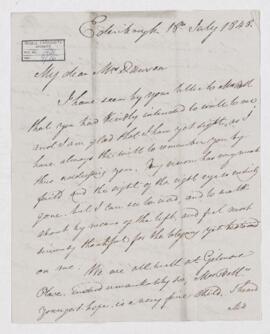 Edinburgh 18th July 1845.
My dear Mrs Duncan
I have seen by your letter to
that you had kindly intended to write to me
and I am glad that I have got sight, as I
have always the will to remember you by
thus addressing you. My vision has very much
failed and the sight of the right eye is entirely
gone. but I can see to read, and to walk
about by means of the left, and feel most
sincerely thankful for the blessing yet bestowed
on me.
We are all well at Gilmore
Place.
youngest hope, is a very fine child. I heard